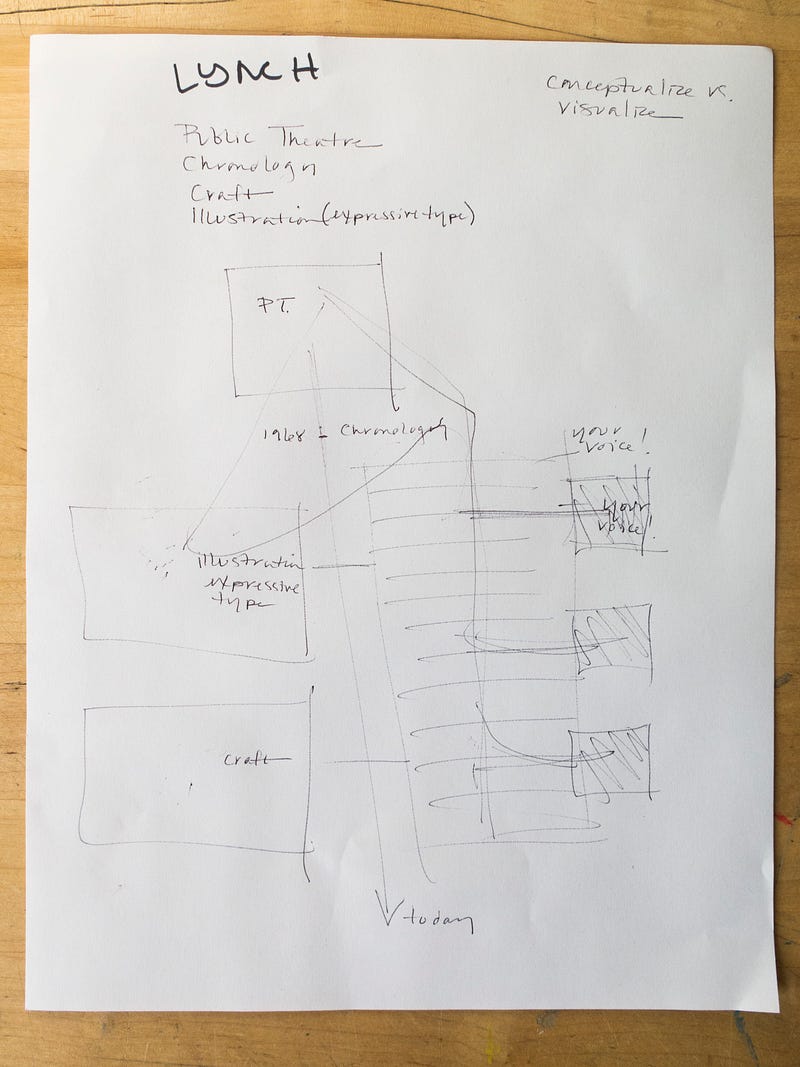 LYNCH
conceptualize vs.
visualize
Public Theatre
Chronology
Craft
Illustration (expressive type)
P.T.
1968 - Chronology
your
voice!
your
voice!
illustration
expressive
type
craft
today